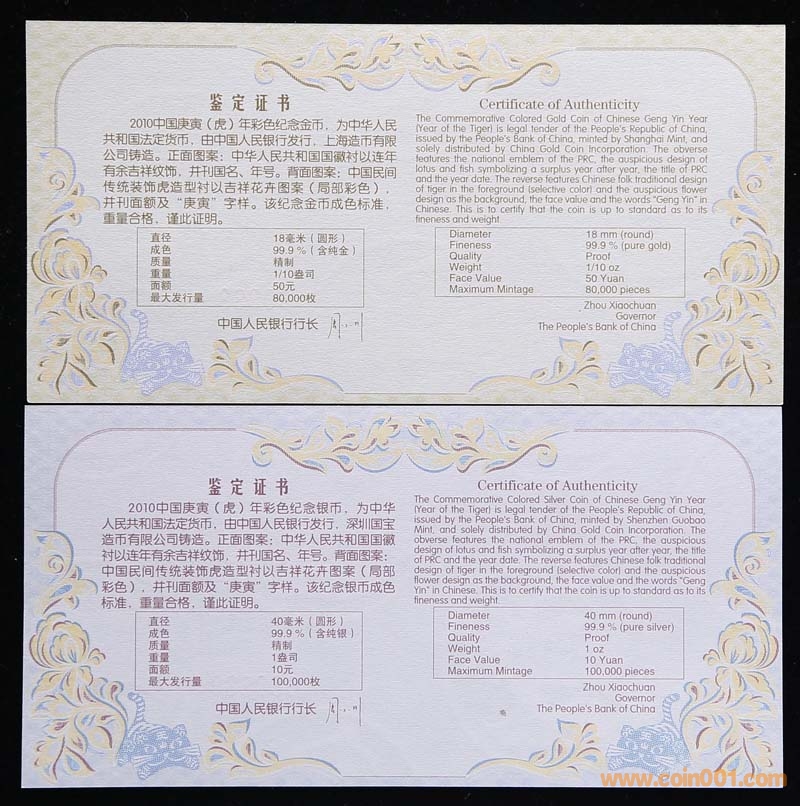 鉴定证书
2010中国庚寅（虎）年彩色纪念金币，为中华人民
共和国法定货币，由中国人民银行发行，上海造币有限
公司铸造。正面图案：中华人民共和国国徽衬以连年
有余吉祥纹饰，并刊国名、年号。背面图案：中国民间
传统装饰虎造型衬以吉祥花卉图案（局部彩色），
并刊面额及“庚寅”字样。该纪念金币成色标准，
重量合格，谨此证明。
直径 18毫米（圆形）
成色 99.9％（含纯金）
质量 精制
重量 1/10盎司
面额 50元
最大发行量 80,000枚
中国人民银行行长
Certificate of Authenticity
The Commemorative Colored Gold Coin of Chinese Geng Yin Year
(Year of the Tiger) is legal tender of the People's Republic of China,
issued by the People's Bank of China, minted by Shanghai Mint, and
solely distributed by China Gold Coin Incorporation. The obverse
features the national emblem of the PRC, the auspicious design of
lotus and fish symbolizing a surplus year after year, the title of PRC
and the year date. The reverse features Chinese folk traditional design
of tiger in the foreground (selective color) and the auspicious flower
design as the background, the face value and the words "Geng Yin" in
Chinese. This is to certify that the coin is up to standard as to its
fineness and weight.
Diameter 18 mm (round)
Fineness 99.9 % (pure gold)
Quality Proof
Weight 1/10 oz
Face Value 50 Yuan
Maximum Mintage 80,000 pieces
Zhou Xiaochuan
Governor
The People's Bank of China
鉴定证书
2010中国庚寅（虎）年彩色纪念银币，为中华
人民共和国法定货币，由中国人民银行发行，深圳国宝
造币有限公司铸造。正面图案：中华人民共和国国徽
衬以连年有余吉祥纹饰，并刊国名、年号。背面图案：
中国民间传统装饰虎造型衬以吉祥花卉图案（局部
彩色），并刊面额及“庚寅”字样。该纪念银币成色
标准，重量合格，谨此证明。
直径 40毫米（圆形）
成色 99.9％（含纯银）
质量 精制
重量 1盎司
面额 10元
最大发行量 100,000枚
中国人民银行行长
Certificate of Authenticity
The Commemorative Colored Silver Coin of Chinese Geng Yin Year
(Year of the Tiger) is legal tender of the People's Republic of China,
issued by the People's Bank of China, minted by Shenzhen Guobao
Mint, and solely distributed by China Gold Coin Incorporation. The
obverse features the national emblem of the PRC, the auspicious
design of lotus and fish symbolizing a surplus year after year, the title
of PRC and the year date. The reverse features Chinese folk traditional
design of tiger in the foreground (selective color) and the auspicious
flower design as the background, the face value and the words "Geng
Yin" in Chinese. This is to certify that the coin is up to standard as to its
fineness and weight.
Diameter 40 mm (round)
Fineness 99.9 % (pure silver)
Quality Proof
Weight 1 oz
Face Value 10 Yuan
Maximum Mintage 100,000 pieces
Zhou Xiaochuan
Governor
The People's Bank of China
www.coin001.com